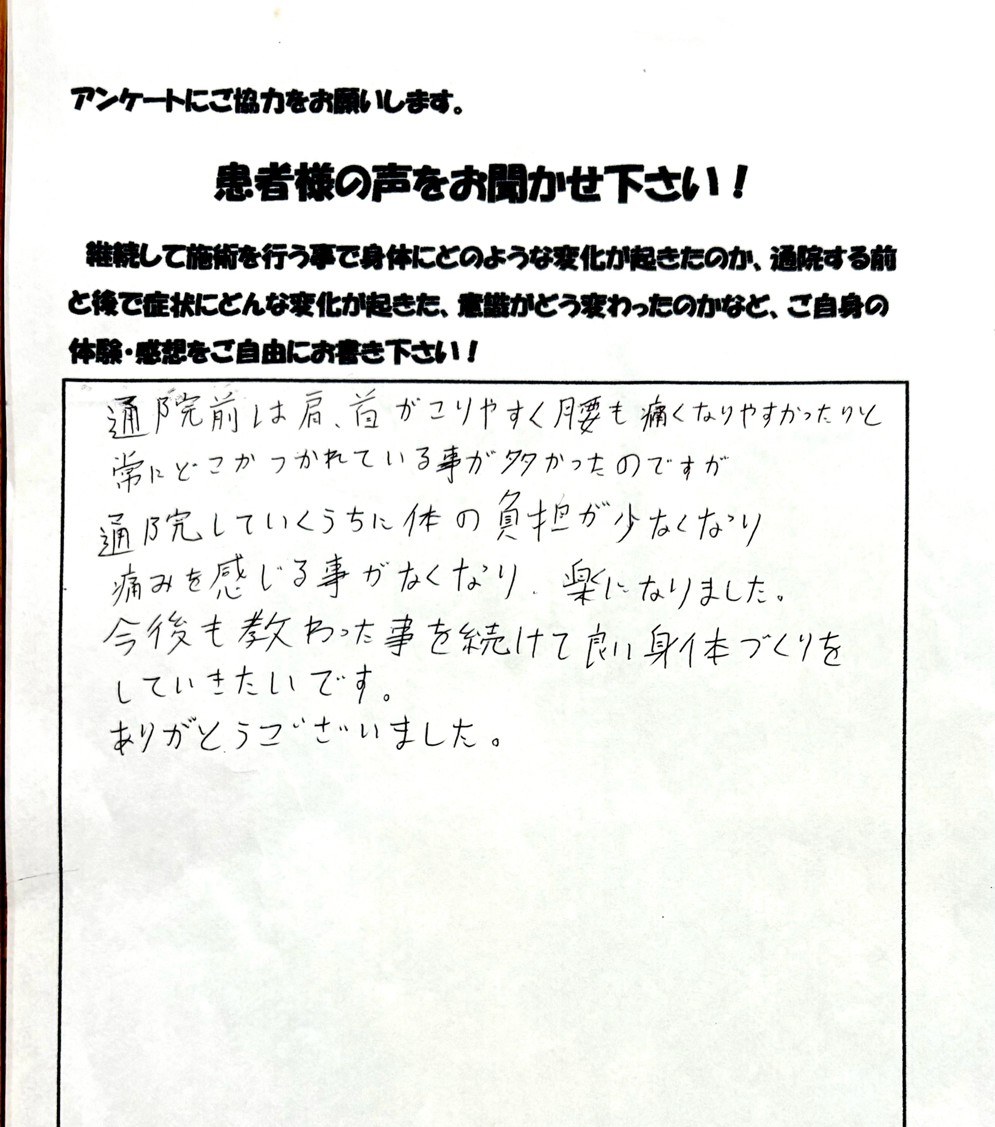 アンケートにご協力をお願いします。
患者様の声をお聞かせ下さい！
継続して施術を行う事で身体にどのような変化が起きたのか、通院する前
と後で症状にどんな変化が起きた、意識がどう変わったのかなど、ご自身の
体験・感想をご自由にお書き下さい！
通院前は肩、首がこりやすく腰も痛くなりやすかったりと
常にどこかつかれている事が多かったのですが
通院していくうちに体の負担が少なくなり
痛みを感じる事がなくなり、楽になりました。
今後も教わった事を続けて良い身体づくりを
していきたいです。
ありがとうございました。